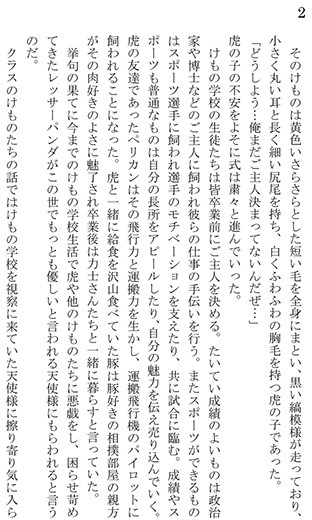 2
そのけものは黄色いさらさらとした短い毛を全身にまとい、黒い縞模様が走っており、
小さく丸い耳と長く細い尻尾を持ち、白くふわふわの胸毛を持つ虎の子であった。
「どうしよう…俺まだご主人決まってないんだぜ…」
虎の子の不安をよそに式は粛々と進んでいった。
けもの学校の生徒たちは皆卒業前にご主人を決める。たいてい成績のよいものは政治
家や博士などのご主人に飼われ彼らの仕事の手伝いを行う。またスポーツができるもの
はスポーツ選手に飼われ選手のモチベーションを支えたり、共に試合に臨む。成績やス
ポーツも普通なものは自分の長所をアピールしたり、自分の魅力を伝え売り込んでいく。
虎の友達であったペリカンはその飛行力と運搬力を生かし、運搬飛行機のパイロットに
飼われることになった。虎と一緒に給食を沢山食べていた豚は豚好きの相撲部屋の親方
がその肉好きのよさに魅了され卒業後は力士さんたちと一緒に暮らすと言っていた。
挙句の果てに今までのけもの学校生活で虎や他のけものたちに悪戯をし、困らせ苛め
てきたレッサーパンダがこの世でもっとも優しいと言われる天使様にもらわれると言う
のだ。
クラスのけものたちの話ではけもの学校を視察に来ていた天使様に擦り寄り気に入ら